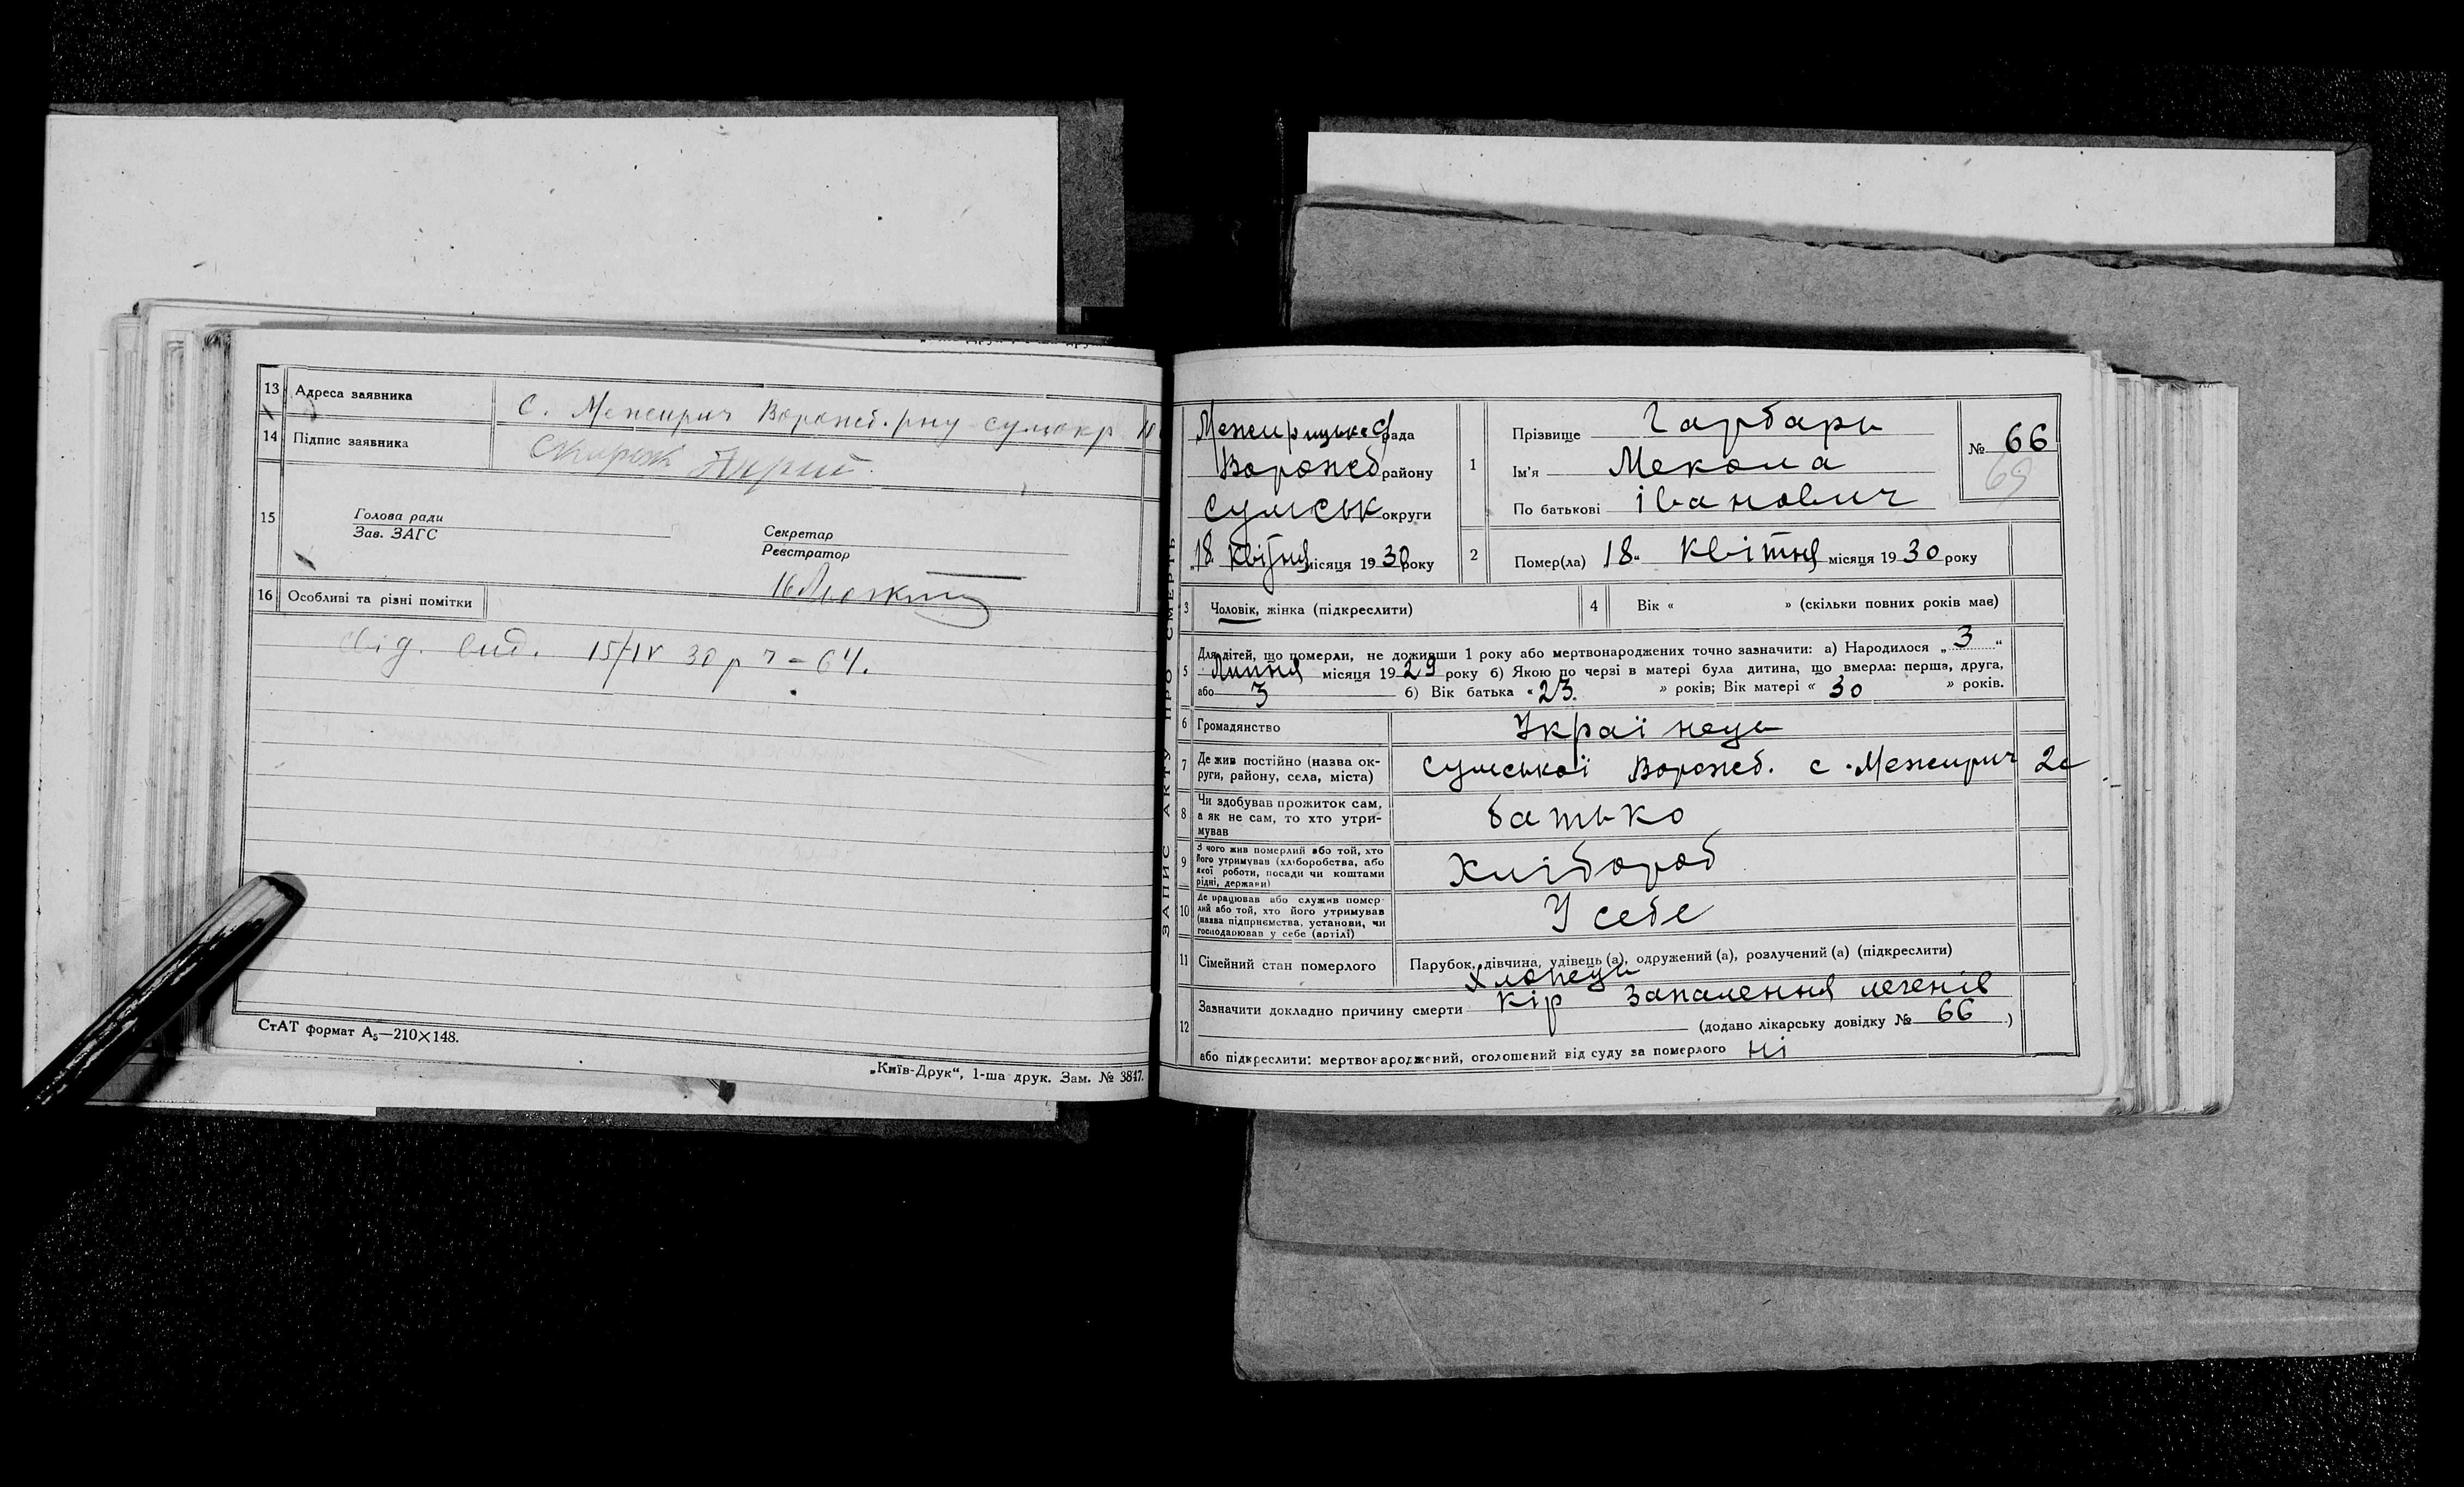 13 Адреса заявника с. Межирич Ворожб. рну сумокр
14 Підпис заявника
15 Голова ради
Зав. ЗАГС
Секретар
Реєстратор
16 Особливі та різні помітки
свід. вид. 15/IV 30 р ч - 64.
СтАТ формат А₅—210×148.
„Київ-Друк“, 1-ша друк. Зам. № 3817.
ЗАПИС АКТУ ПРО СМЕРТЬ
Межирицька рада
Ворожеб району
Сумськ округи
„18 Квітня місяця 1930 року
1 Прізвище Гарбарь
Ім'я Мекола
По батькові іванович
№ 66
69
2 Помер(ла) 18 „ Квітня місяця 1930 року
3 Чоловік, жінка (підкреслити)
4 Вік « » (скільки повних років має)
5 Для дітей, що померли, не доживши 1 року або мертвонароджених точно зазначити: а) Народилося „ 3 “
Липня місяця 1929 року б) Якою по черзі в матері була дитина, що вмерла: перша, друга,
або 3 б) Вік батька « 23. » років; Вік матері « 30 » років.
6 Громадянство Украї нець
7 Де жив постійно (назва ок-
руги, району, села, міста) Сумської Ворожеб. с. Межирич 2с
8 Чи здобував прожиток сам,
а як не сам, то хто утри-
мував батько
9 З чого жив померлий або той, хто
його утримував (хліборобства, або
якої роботи, посади чи коштами
рідні, держави) Хлібороб
10 Де працював або служив помер-
лий або той, хто його утримував
(назва підприємства, установи, чи
господарював у себе (артілі) У себе
11 Сімейний стан померлого Парубок, дівчина, удівець (а), одружений (а), розлучений (а) (підкреслити)
Хлопець
12 Зазначити докладно причину смерти Кір Запалення легенів
(додано лікарську довідку № 66 )
або підкреслити: мертвонароджений, оголошений від суду за померлого Ні